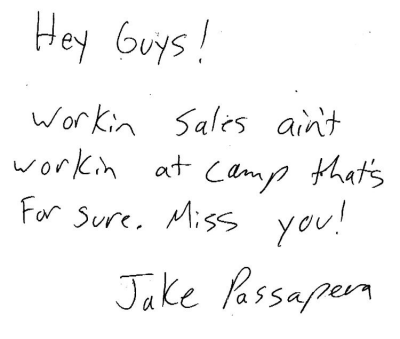 Hey Guys!
Workin Sales ain't
workin at camp that's
For sure. Miss you!
Jake Passapera